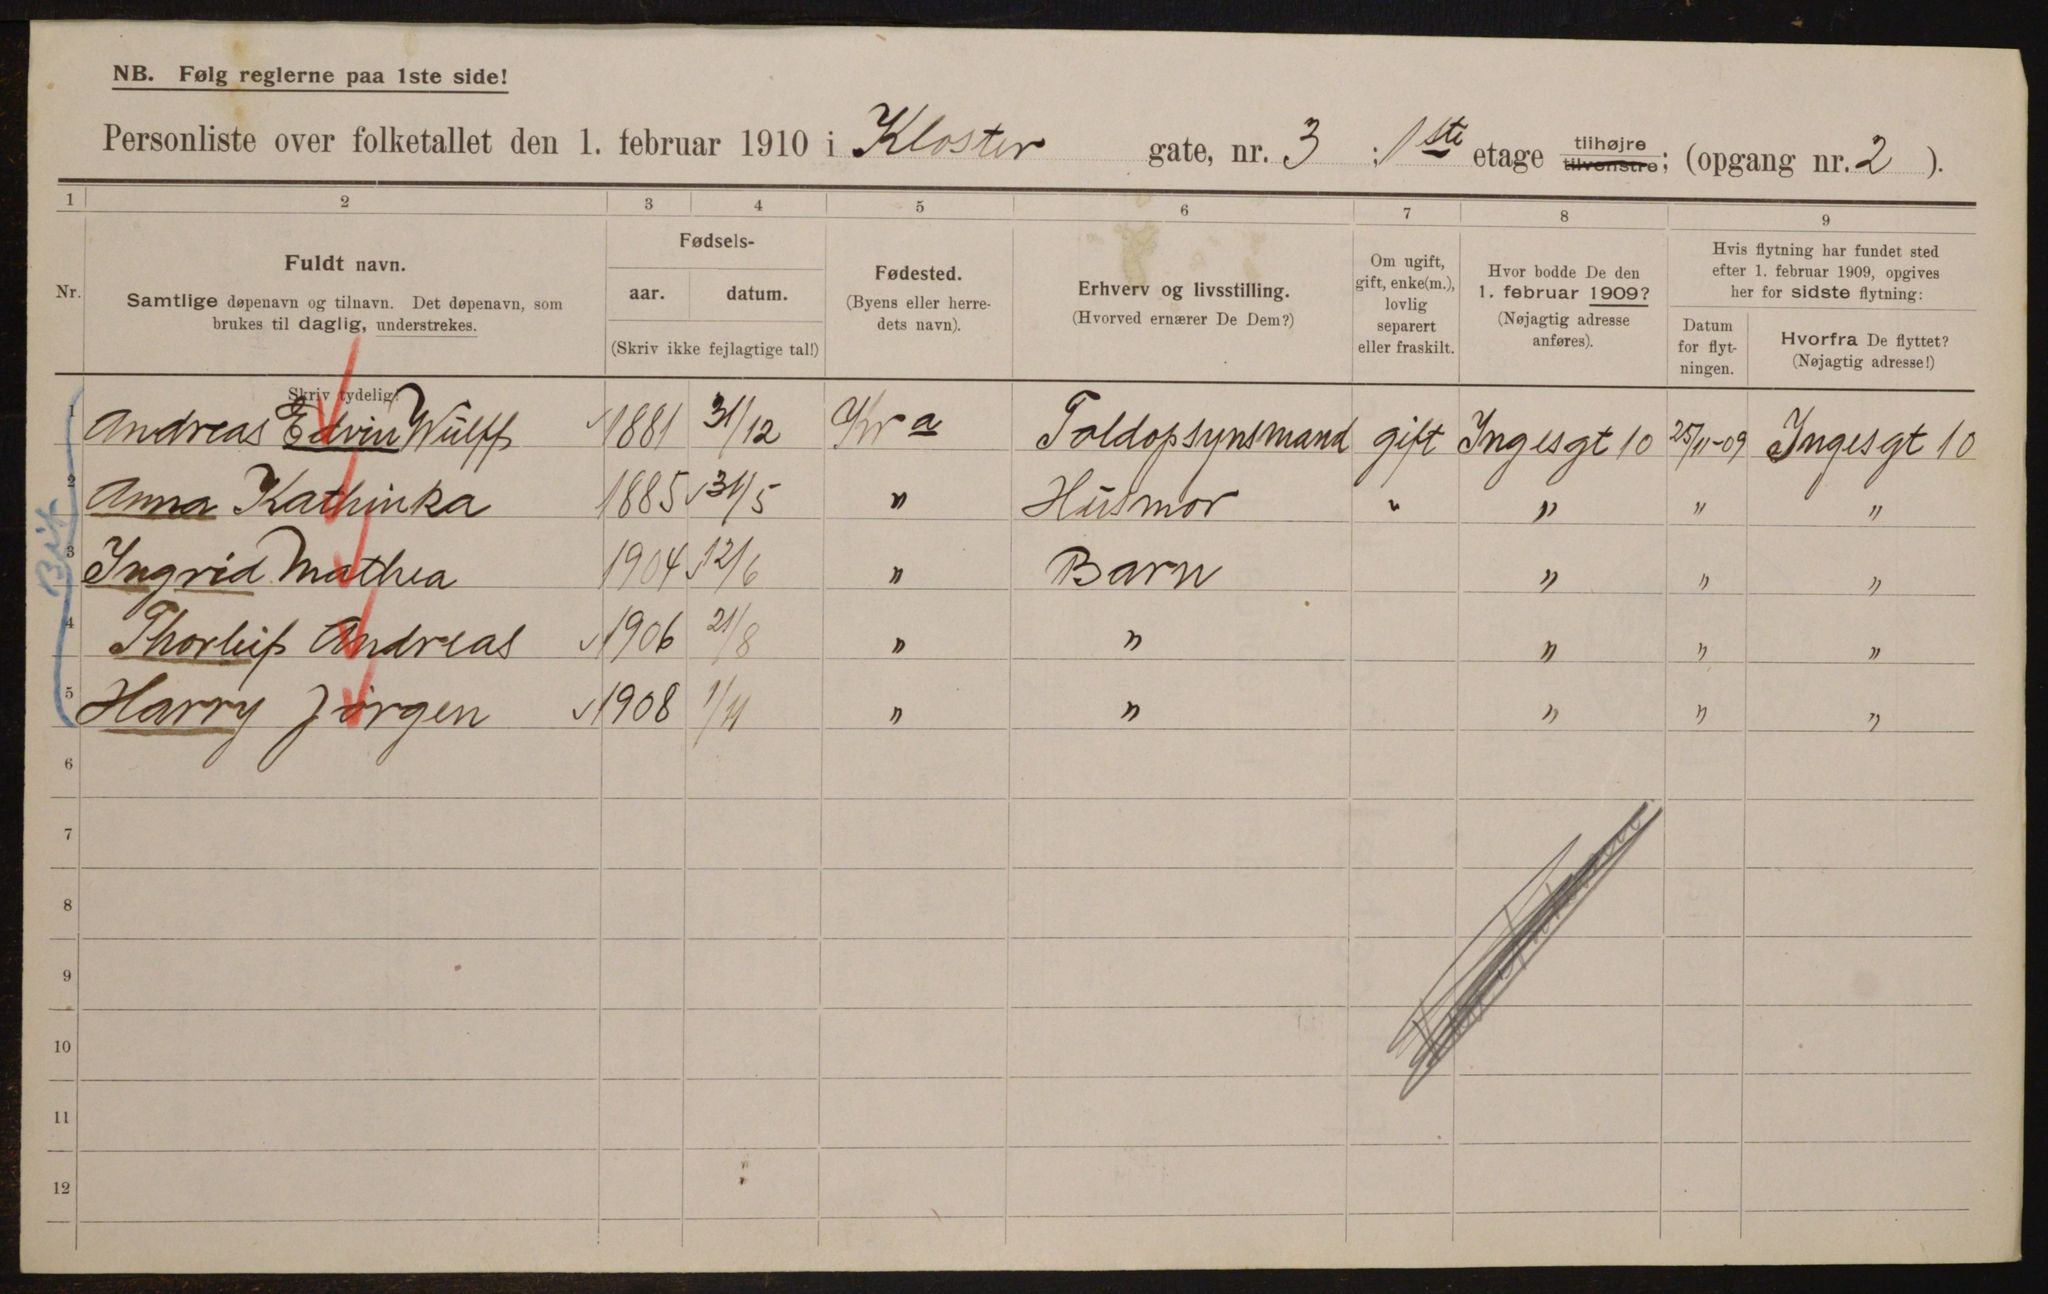 NB. Følg reglerne paa 1ste side!
Personliste over folketallet den 1. februar 1910 i Kloster gate, nr. 3 : 1ste etage tilhøjre tilvenstre; (opgang nr. 2 ).
1 2 3 4 5 6 7 8 9
Nr.
Fuldt navn.
Samtlige døpenavn og tilnavn. Det døpenavn, som
brukes til daglig, understrekes.
Fødsels-
aar. datum.
(Skriv ikke fejlagtige tal!)
Fødested.
(Byens eller herre-
dets navn).
Erhverv og livsstilling.
(Hvorved ernærer De Dem?)
Om ugift,
gift, enke(m.),
lovlig
separert
eller fraskilt.
Hvor bodde De den
1. februar 1909?
(Nøjagtig adresse
anføres).
Hvis flytning har fundet sted
efter 1. februar 1909, opgives
her for sidste flytning:
Datum
for flyt-
ningen.
Hvorfra De flyttet?
(Nøjagtig adresse!)
Skriv tydelig!
1 Andreas Edvin Wulff 1881 31/12 Kra Toldopsynsmand gift Ingesgt 10 25/11-09 Ingesgt 10
2 Anna Kathinka 1885 31/5 " Husmor " " " "
3 Ingrid Mathea 1904 12/6 " Barn " " "
4 Thorleif Andreas 1906 21/8 " " " " "
5 Harry Jørgen 1908 1/11 " " " " "
6
7
8
9
10
11
12